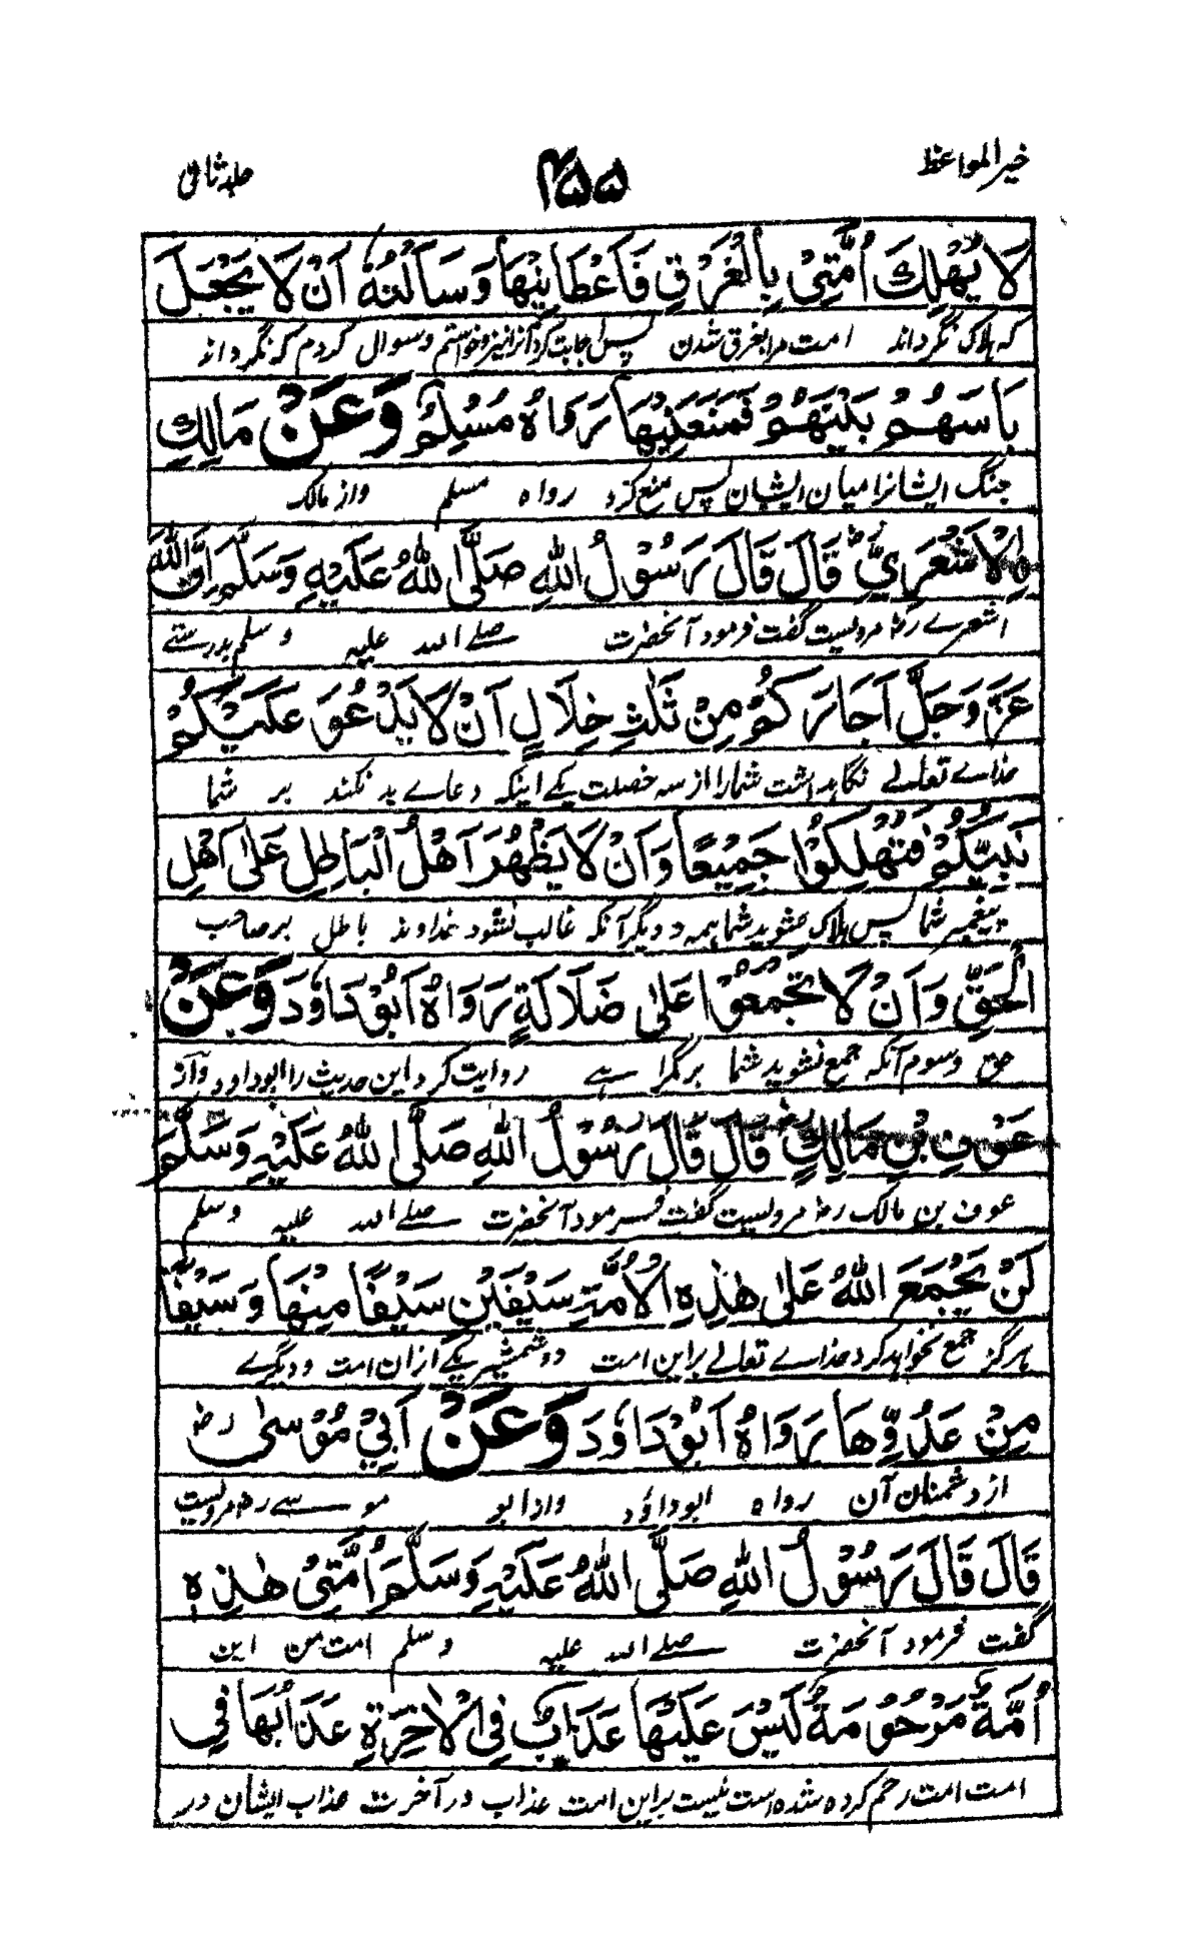 خیر المواعظ
۴۵۵
جلد ثانی
لَا يُهْلِكَ اُمَّتِىْ بِالْغَرَقِ فَاَعْطَانِيْهَا وَسَاَلْتُهُ اَنْ لَا يَجْعَلَ
که هلاک نگرداند امت مرا بغرق شدن پس اجابت کرد آنرا نیز و خواستم و سوال کردم که نگرداند
بَاسَهُمْ بَيْنَهُمْ فَمَنَعَنِيْهَا رَوَاهُ مُسْلِمٌ وَعَنْ مَالِكِ
جنگ ایشانرا میان ایشان پس منع کرد رواه مسلم واز مالک
الْاَشْعَرِيِّ رض قَالَ قَالَ رَسُوْلُ اللّٰهِ صَلَّى اللّٰهُ عَلَيْهِ وَسَلَّمَ اِنَّ اللّٰهَ
اشعرے رض مرویست گفت فرمود آنحضرت صلے الله علیه وسلم بدرستے
عَزَّ وَجَلَّ اَجَارَكُمْ مِنْ ثَلٰثِ خِلَالٍ اَنْ لَا يَدْعُوَ عَلَيْكُمْ
خداے تعالے نگاهداشت شمارا از سه خصلت یکے اینکه دعاے بد نکند بر شما
نَبِيُّكُمْ فَتُهْلِكُوْا جَمِيْعًا وَاَنْ لَا يَظْهَرَ اَهْلُ الْبَاطِلِ عَلٰى اَهْلِ
پیغمبر شما پس هلاک شوید شما همه و دیگر آنکه غالب نشود خداوند باطل بر صاحب
الْحَقِّ وَاَنْ لَا تَجْمَعُوْا عَلٰى ضَلَالَةٍ رَوَاهُ اَبُوْ دَاوٗدَ وَعَنْ
حق وسوم آنکه جمع نشوید شما بر گمراهے روایت کرد این حدیث را ابوداود واز
عَوْفِ بْنِ مَالِكٍ رض قَالَ قَالَ رَسُوْلُ اللّٰهِ صَلَّى اللّٰهُ عَلَيْهِ وَسَلَّمَ
عوف بن مالک رض مرویست گفت فرمود آنحضرت صلے الله علیه وسلم
لَنْ يَجْمَعَ اللّٰهُ عَلٰى هٰذِهِ الْاُمَّةِ سَيْفَيْنِ سَيْفًا مِنْهَا وَسَيْفًا
هرگز جمع نخواهد کرد خداے تعالے براین امت دو شمشیر یکے ازان امت ودیگرے
مِنْ عَدُوِّهَا رَوَاهُ اَبُوْ دَاوٗدَ وَعَنْ اَبِيْ مُوْسٰى رض
از دشمنان آن رواه ابوداؤد واز ابو موسے رض مرویست
قَالَ قَالَ رَسُوْلُ اللّٰهِ صَلَّى اللّٰهُ عَلَيْهِ وَسَلَّمَ اُمَّتِىْ هٰذِهٖ
گفت فرمود آنحضرت صلے الله علیه وسلم امت من این
اُمَّةٌ مَرْحُوْمَةٌ لَيْسَ عَلَيْهَا عَذَابٌ فِي الْاٰخِرَةِ عَذَابُهَا فِي
امت امت رحم کرده شده است نیست براین امت عذاب در آخرت عذاب ایشان در